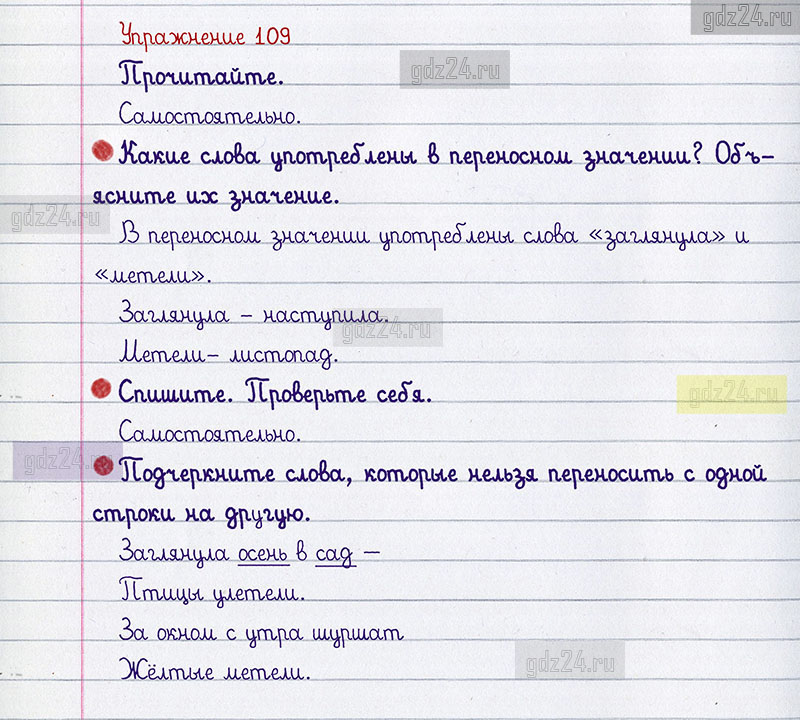 gdz24.ru
Упражнение 109
gdz24.ru
Прочитайте.
Самостоятельно.
Какие слова употреблены в переносном значении? Объ-
ясните их значение.
gdz24.ru
В переносном значении употреблены слова «заглянула» и
«метели».
Заглянула – наступила.
gdz24.ru
Метели– листопад.
Спишите. Проверьте себя.
gdz24.ru
Самостоятельно.
gdz24.ru
Подчеркните слова, которые нельзя переносить с одной
строки на другую.
Заглянула осень в сад –
Птицы улетели.
За окном с утра шуршат
gdz24.ru
Жёлтые метели.